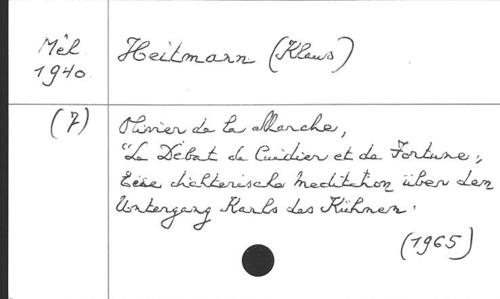 Mél.
1940
Heitmann (Klaus)
(7)
Olivier de la Marche,
"Le Débat de Cuidier et de Fortune",
Eine dichterische Meditation über den
Untergang Karls des Kühnen.
(1965)